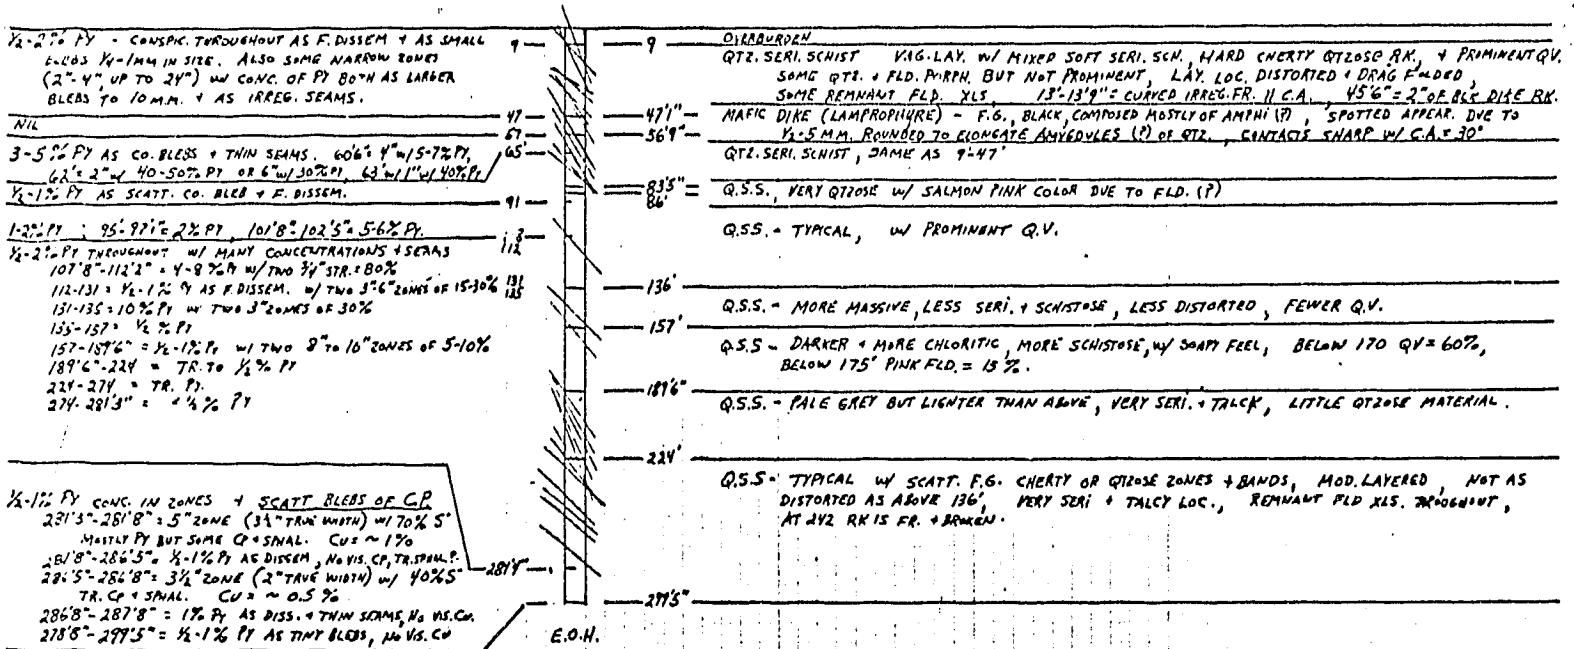 ½-2% PY - CONSPIC. THROUGHOUT AS F. DISSEM + AS SMALL
BLEBS ¼-1MM IN SIZE. ALSO SOME NARROW ZONES
(2"-4", UP TO 24") W/ CONC. OF PY BOTH AS LARGER
BLEBS TO 10 M.M. + AS IRREG. SEAMS.
NIL
3-5% PY AS CO. BLEBS + THIN SEAMS. 60'6" 4" W/ 5-7% PY,
62' = 2" W/ 40-50% PY OR 6" W/ 30% PY, 63' W/ 1" W/ 40% PY
½-1% PY AS SCATT. CO. BLEB + F. DISSEM.
1-2% PY ; 95'-97'1" = 2% PY, 101'8"-102'5" = 5-6% PY.
½-2% PY THROUGHOUT W/ MANY CONCENTRATIONS + SEAMS
107'8"-112'2" = 4-8% PY W/ TWO ¾" STR. = 80%
112-131 = ½-1% PY AS F. DISSEM. W/ TWO 3"-6" ZONES OF 15-30%
131-135 = 10% PY W/ TWO 3" ZONES OF 30%
135-157 = ½% PY
157-189'6" = ½-1% PY W/ TWO 8" TO 10" ZONES OF 5-10%
189'6"-224 = TR. TO ½% PY
224-274 = TR. PY.
274-281'3" = <½% PY
½-1% PY CONC. IN ZONES + SCATT BLEBS OF C.P.
281'3"-281'8" = 5" ZONE (3½" TRUE WIDTH) W/ 70% S
MOSTLY PY BUT SOME CP + SPHAL. CU = ~1%
281'8"-286'5" = ½-1% PY AS DISSEM, NO VIS. CP, TR. SPHAL?
286'5"-286'8" = 3½" ZONE (2" TRUE WIDTH) W/ 40% S
TR. CP + SPHAL. CU = ~0.5%
286'8"-287'8" = 1% PY AS DISS. + THIN SEAMS, NO VIS. CU.
278'8"-299'5" = ½-1% PY AS TINY BLEBS, NO VIS. CU
9
47
57
65'
91
112
131
135
281'4"
E.O.H.
9
47'1"
56'9"
83'5"
86'
136'
157'
189'6"
224'
299'5"
OVERBURDEN
QTZ. SERI. SCHIST VAG. LAY. W/ MIXED SOFT SERI. SCH., HARD CHERTY QTZOSE RK., + PROMINENT QV.
SOME QTZ. + FLD. PORPH. BUT NOT PROMINENT, LAY. LOC. DISTORTED + DRAG FOLDED,
SOME REMNANT FLD. XLS, 13'-13'9" = CURVED IRREG. FR. || C.A., 45'6" = 2" OF BLK DIKE RK.
MAFIC DIKE (LAMPROPHYRE) - F.G., BLACK, COMPOSED MOSTLY OF AMPHI (?), SPOTTED APPEAR. DUE TO
½-5 M.M. ROUNDED TO ELONGATE AMYGDULES (?) OF QTZ., CONTACTS SHARP W/ C.A. = 30°
QTZ. SERI. SCHIST, SAME AS 9'-47'
Q.S.S., VERY QTZOSE W/ SALMON PINK COLOR DUE TO FLD. (?)
Q.S.S. - TYPICAL, W/ PROMINENT Q.V.
Q.S.S. - MORE MASSIVE, LESS SERI. + SCHISTOSE, LESS DISTORTED, FEWER Q.V.
Q.S.S - DARKER + MORE CHLORITIC, MORE SCHISTOSE, W/ SOAPY FEEL, BELOW 170 QV = 60%,
BELOW 175' PINK FLD. = 15%.
Q.S.S. - PALE GREY BUT LIGHTER THAN ABOVE, VERY SERI. + TALCY, LITTLE QTZOSE MATERIAL.
Q.S.S - TYPICAL W/ SCATT. F.G. CHERTY OR QTZOSE ZONES + BANDS, MOD. LAYERED, NOT AS
DISTORTED AS ABOVE 136', VERY SERI + TALCY LOC., REMNANT FLD XLS. THROUGHOUT,
AT 242 RK IS FR. + BROKEN.